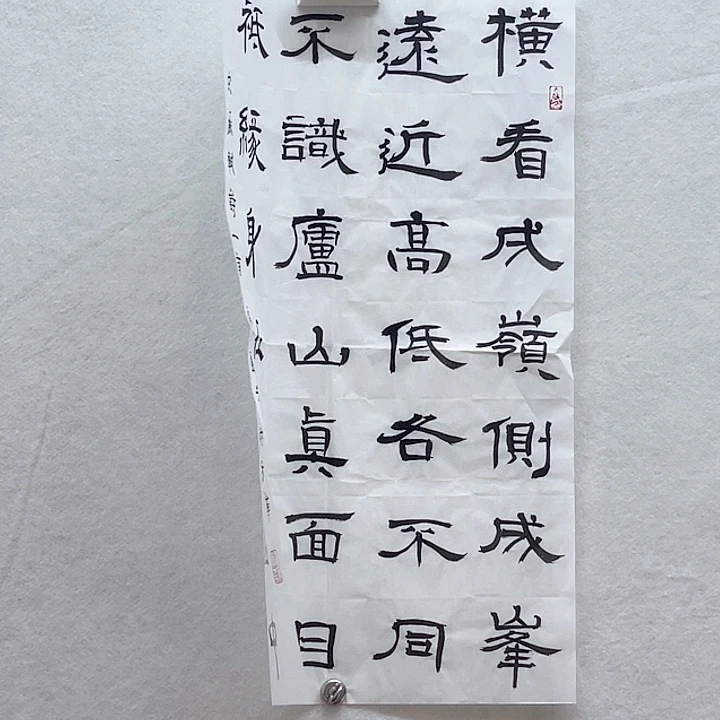 橫看成嶺側成峯
遠近髙低各不同
不識廬山眞面目
祗緣身